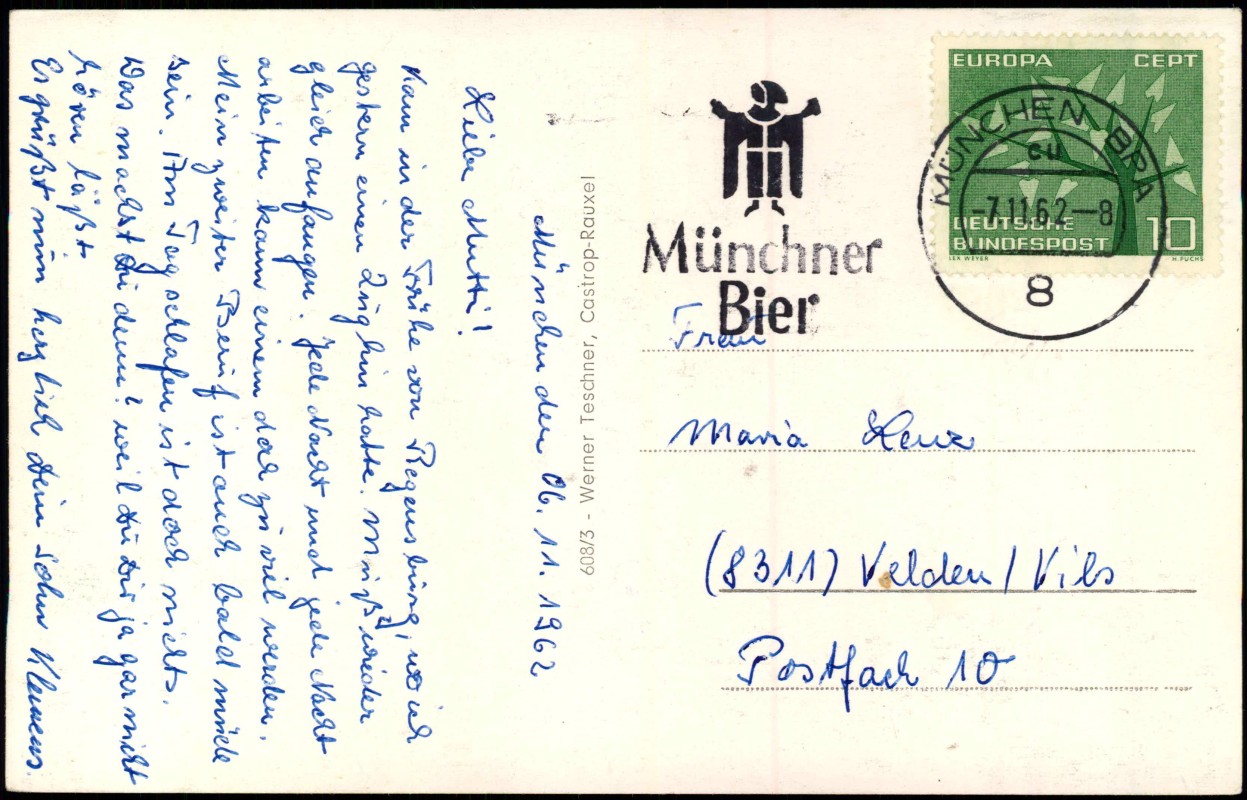 München den 06. 11. 1962
Liebe Mutti!
Kam in der Frühe von Regensburg, wo ich
gestern einen Zug hin hatte. Muß wieder
gleich anfangen. Jede Nacht und jede Nacht
arbeiten kann einem doch zu viel werden.
Mein zweiter Beruf ist auch bald müde
sein. Am Tag schlafen ist doch nichts.
Was machst Du denn? weil Du Dir ja gar nicht
hören läßt.
Es grüßt nun herzlich Dein Sohn Klemens.
608/3 - Werner Teschner, Castrop-Rauxel
Münchner
Bier
EUROPA CEPT
DEUTSCHE
BUNDESPOST 10
LEX WEYER H. FUCHS
MÜNCHEN BPA
cu
-7.11.62-8
8
Frau
Maria Lenz
(8311) Velden/Vils
Postfach 10